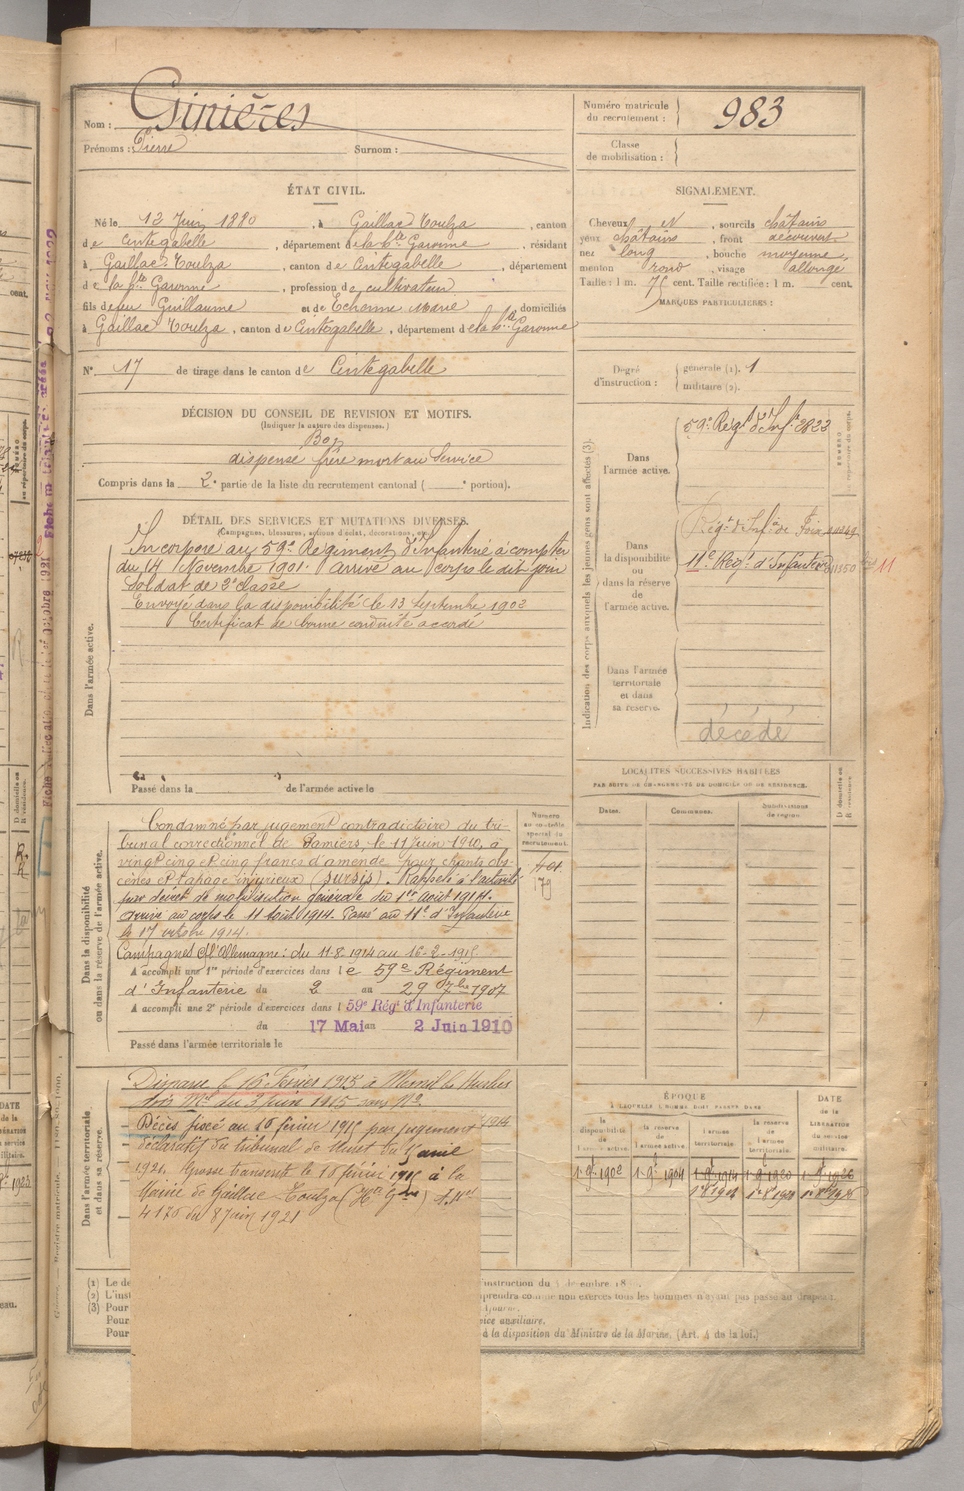 Nom : Ginières
Prénoms : Pierre Surnom :
Numéro matricule du recrutement : 983
Classe de mobilisation :
ÉTAT CIVIL.
Né le 12 Juin 1880, à Gaillac-Toulza, canton
de Cintegabelle, département de la Hte Garonne, résidant
à Gaillac-Toulza, canton de Cintegabelle, département
de la Hte Garonne, profession de cultivateur
fils de feu Guillaume et de Marie domiciliés
à Gaillac Toulza, canton de Cintegabelle, département de la Hte Garonne
N° 17 de tirage dans le canton de Cintegabelle
SIGNALEMENT.
Cheveux N, sourcils châtains
yeux châtains, front découvert
nez long, bouche moyenne,
menton rond, visage allongé
Taille : 1 m. 75 cent. Taille rectifiée : 1 m. cent.
MARQUES PARTICULIÈRES :
Degré d'instruction : générale (1). 1
militaire (2).
DÉCISION DU CONSEIL DE REVISION ET MOTIFS.
(Indiquer la nature des dispenses.)
Bon
dispensé frère mort au Service
Compris dans la 2e partie de la liste du recrutement cantonal ( e portion).
DÉTAIL DES SERVICES ET MUTATIONS DIVERSES.
(Campagnes, blessures, actions d'éclat, décorations, etc.)
Dans l'armée active.
Incorporé au 59e Régiment d'Infanterie à compter
du 14 Novembre 1901. Arrivé au corps le dit jour
Soldat de 2e classe
Envoyé dans la disponibilité le 13 Septembre 1902
Certificat de bonne conduite accordé
Passé dans la de l'armée active le
Indication des corps auxquels les jeunes gens sont affectés (3).
Dans l'armée active.
59e Régt d'Infie 2823
NUMÉRO au répertoire du corps.
Dans la disponibilité ou dans la réserve de l'armée active.
Régt d'Infie de Foix
11e Régt d'Infanterie 11
Dans l'armée territoriale et dans sa réserve.
décédé
LOCALITÉS SUCCESSIVES HABITÉES
PAR SUITE DE CHANGEMENTS DE DOMICILE OU DE RÉSIDENCE.
Dates. Communes. Subdivisions de région. D domicile ou R résidence.
Dans la disponibilité ou dans la réserve de l'armée active.
Numéro au contrôle spécial du recrutement.
Condamné par jugement contradictoire du tri-
bunal correctionnel de Pamiers, le 11 Juin 1910, à
vingt cinq et cinq francs d'amende pour chants obs-
cènes et tapage injurieux (sursis). Rappelé à l'activité
par décret de mobilisation générale du 1er Août 1914.
Arrivé au corps le 11 Août 1914. Passé au 11e d'Infanterie
le 17 octobre 1914.
Campagnes c/ l'Allemagne : du 11-8-1914 au 16-2-1915
A accompli une 1re période d'exercices dans le 59e Régiment
d'Infanterie du 2 au 29 7bre 1907
A accompli une 2e période d'exercices dans l 59e Régt d'Infanterie
du 17 Mai au 2 Juin 1910
Passé dans l'armée territoriale le
Dans l'armée territoriale et dans sa réserve.
Disparu le 16 Février 1915 à Mesnil les Hurlus
avis Mel du 3 Juin 1915 sans N°
Décès fixé au 16 février 1915 par jugement
déclaratif du tribunal de Muret du
1921. transcrit le à la
Mairie de Gaillac-Toulza (Hte Gne)
4176 du 8 juin 1921
ÉPOQUE
À LAQUELLE L'HOMME DOIT PASSER DANS
la disponibilité de l'armée active.
la réserve de l'armée active.
l'armée territoriale.
la réserve de l'armée territoriale.
DATE de la LIBÉRATION du service militaire.
(1) Le de
(2) L'inst
(3) Pour
Pour
Pour
prendra comme non exercés tous les hommes n'ayant pas passé au drapeau.
à la disposition du Ministre de la Marine. (Art. 4 de la loi.)